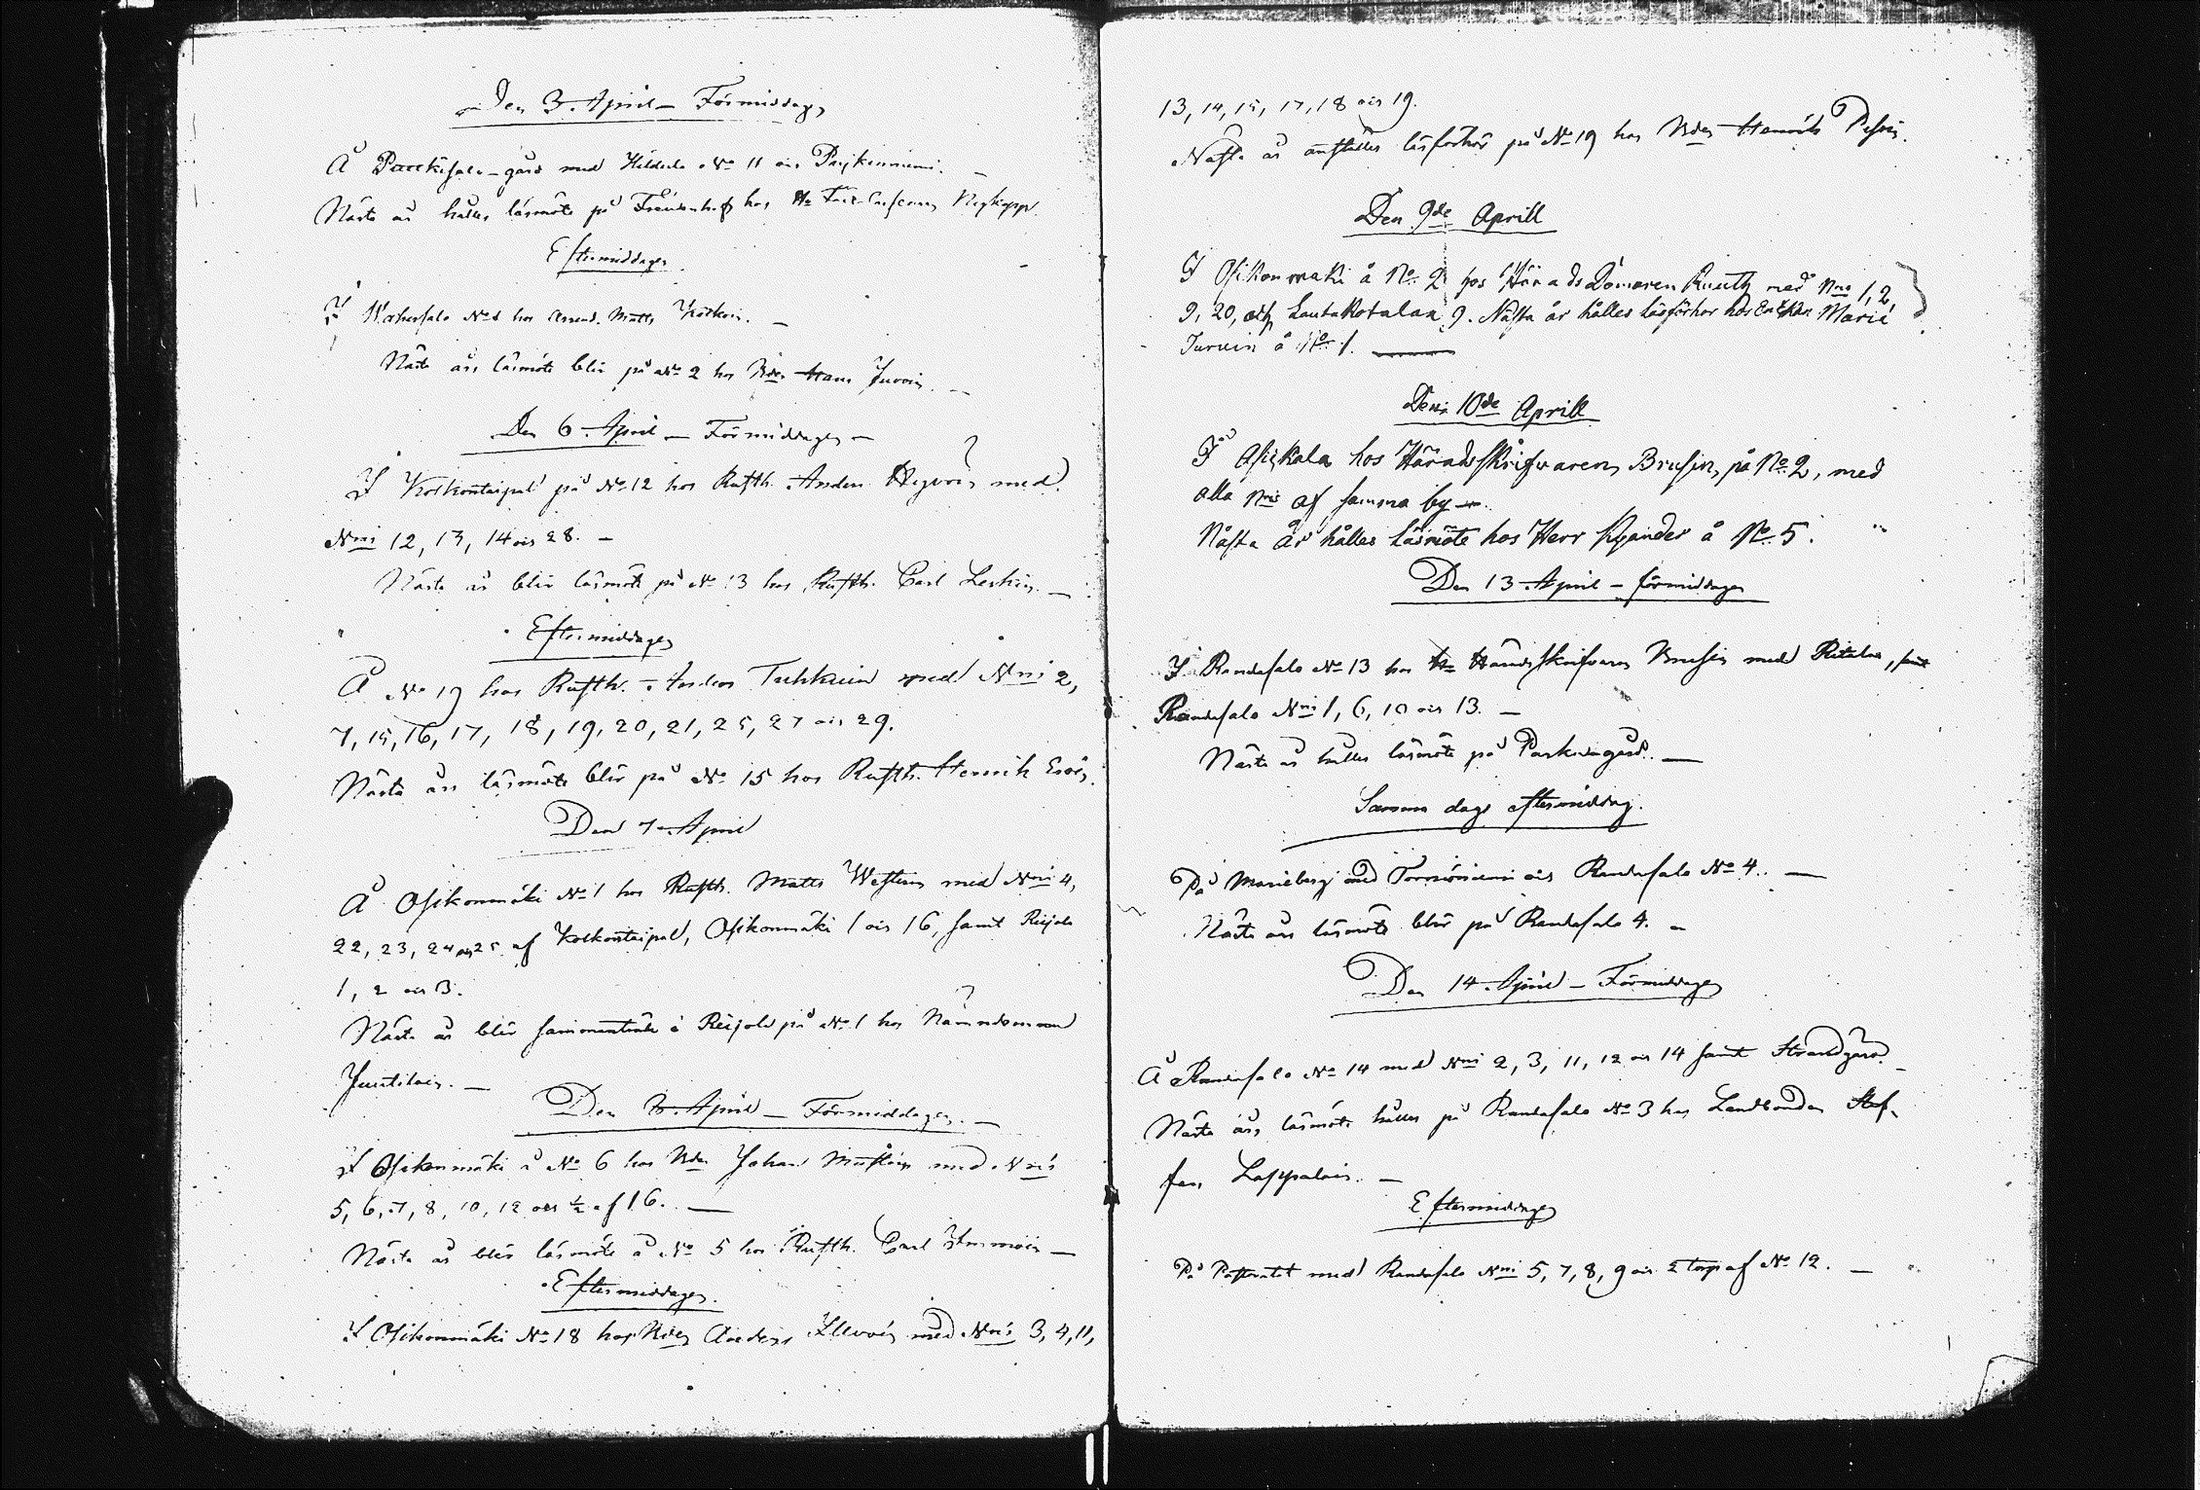 Den 3 April – Förmiddagen
Å Pauckusalo-gård med Hildula No 11 och Paykinniemi. –
Nästa år hålles läsmöte på Freudenhof hos Hr
Eftermiddagen
I Wehusalo No 1 hos Arrend. Matts –
Nästa års läsmöte blir på No 2 hos Bdn Hans Juvoin. –
Den 6 April – Förmiddagen –
I Kolkontaipal på No 12 hos Rusth. Anders Hyvöin med
Nris 12, 13, 14 och 28. –
Nästa år blir läsmöte på No 13 hos Rusth. Carl Leskin. –
Eftermiddagen
Å No 19 hos Rusth. Anders Tuhkuin med Nris 2,
7, 15, 16, 17, 18, 19, 20, 21, 25, 27 och 29.
Nästa års läsmöte blir på No 15 hos Rusth. Henrik
Den 7 April
Å Osikonmäki No 1 hos Rusth. Matts med Nris 4,
22, 23, 24 och 25 af Kolkontaipal, Osikonmäki 1 och 16, samt Reijola
1, 2 och 3.
Nästa år blir sammanträde å Reijola på No 1 hos Nämndeman
Juutilain. –
Den 8 April – Förmiddagen. –
I Osikonmäki å No 6 hos Bdn Johan med Nris
5, 6, 7, 8, 10, 12 och ½ af 16. –
Nästa år blir läsmöte å No 5 hos Rusth. Carl Immoin –
Eftermiddagen.
I Osikonmäki No 18 hos Bden Anders Illvoin med Nris 3, 4, 11,
13, 14, 15, 17, 18 och 19.
Nästa år anställes läsförhör på No 19 hos Bden Henrik
Den 9de Aprill
I Osikonmaki å No 2 hos HäradsDomaren Ruuth med Nro 1, 2,
9, 20, och Lautakotalax 9. Nästa år hålles läsförhör hos Enkan Maria
Turuin å No 1.
Den 10de Aprill
I Asikkala hos Häradsskrifvaren Brusin, på No 2, med
alla Nris af samma by –
Nästa år hålles läsmöte hos Herr Kyander å No 5.
Den 13 April – förmiddagen
I Randasalo No 13 hos Hr Häradsskrifvaren Brusin med Ritalax, samt
Randasalo Nris 1, 6, 10 och 13. –
Nästa år hålles läsmöte på
Samma dags eftermiddag.
På Marieberg med och Randasalo No 4. –
Nästa års läsmöte blir på Randasalo 4. –
Den 14 April – Förmiddagen
Å Randasalo No 14 med Nris 2, 3, 11, 12 och 14 samt Strandgård. –
Nästa års läsmöte hålles på Randasalo No 3 hos Landbonden Staf-
fan Lappalain. –
Eftermiddagen
På Pastoratet med Randasalo Nris 5, 7, 8, 9 och 2 torp af No 12. –